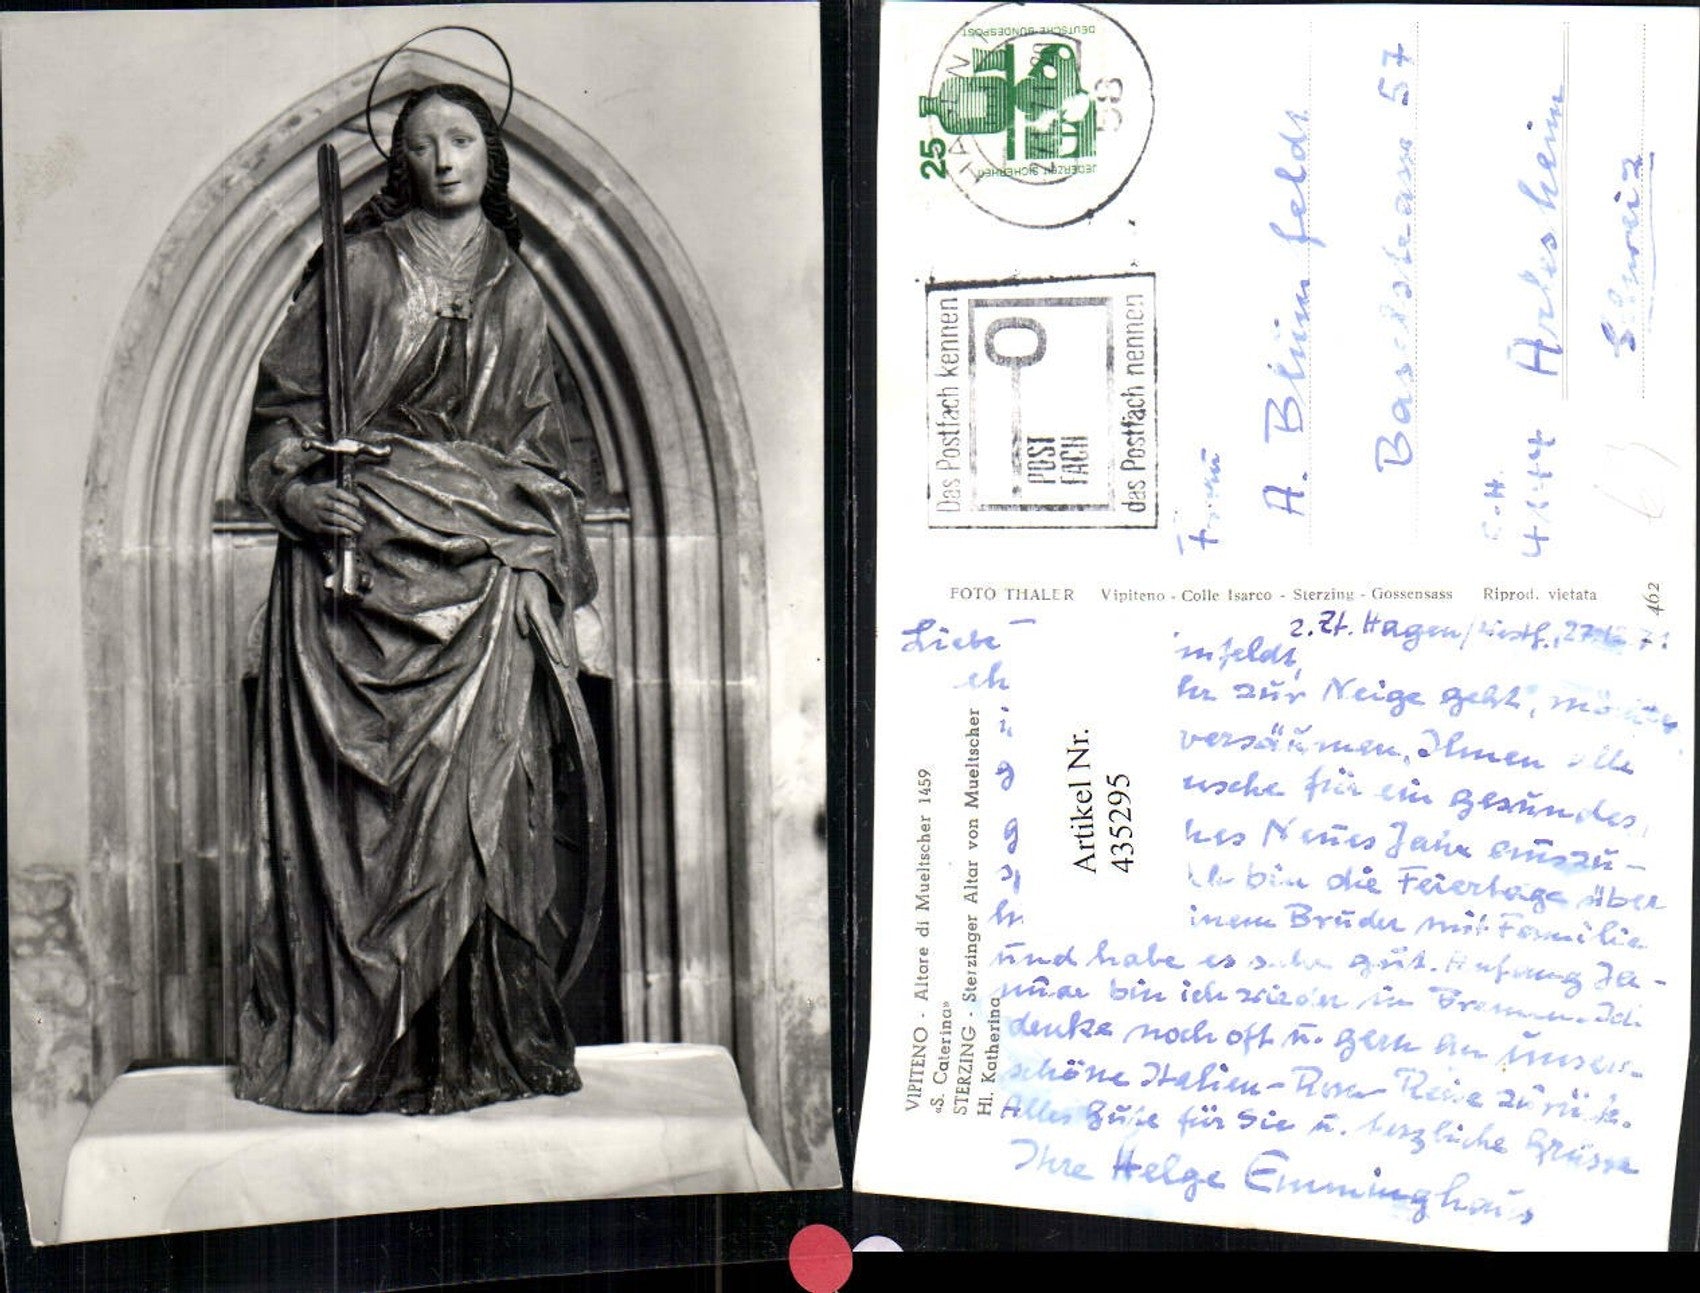 25
DEUTSCHE BUNDESPOST
JEDERZEIT SICHERHEIT
HAGEN 1
58
Das Postfach kennen
POST
FACH
das Postfach nennen
Frau
A. Blümfeldt
Baselstrasse 57
C.H.
4144 Arlesheim
Schweiz
FOTO THALER Vipiteno - Colle Isarco - Sterzing - Gossensass Riprod. vietata
462
VIPITENO - Altare di Mueltscher 1459
«S. Caterina»
STERZING - Sterzinger Altar von Mueltscher
Hl. Katherina
Artikel Nr.
435295
z. Zt. Hagen
Liebe infeldt,
eh hr zur Neige geht,
versäumen, Ihnen alle
nsche für ein gesundes,
hes Neues Jahr auszu-
ch bin die Feiertage über
inem Bruder mit Familie
und habe es sehr gut. Anfang Ja-
nuar bin ich wieder in Bremen. Ich
denke noch oft u. gern an unsere
schöne Italien-Rom-Reise zurück.
Alles Gute für Sie u. herzliche Grüsse
Ihre Helge Emminghaus